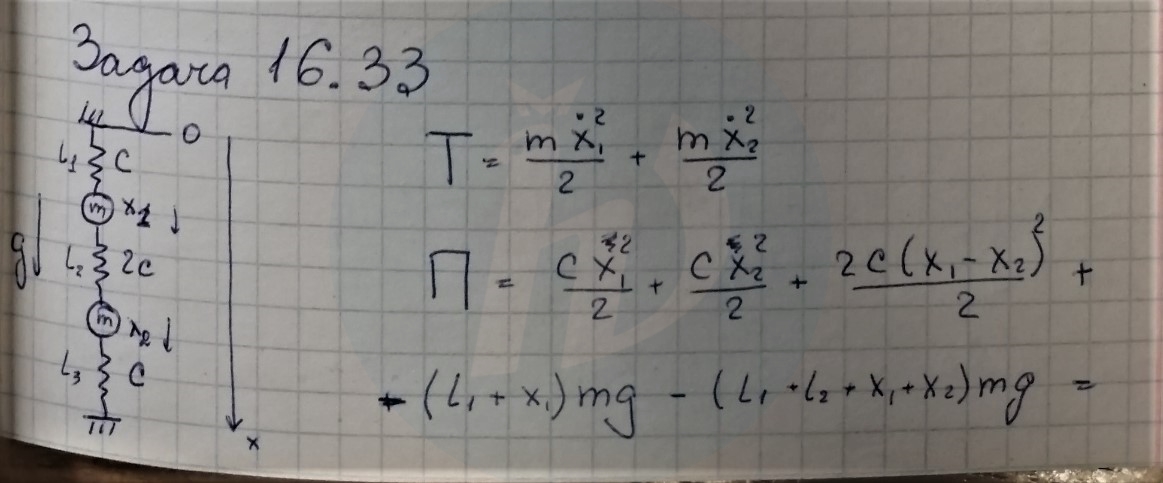 Задача 16.33
O
L₁ C
m x₁
g L₂ 2C
m x₂
L₃ C
x
T = mẋ₁²/2 + mẋ₂²/2
П = Cx₁²/2 + Cx₂²/2 + 2C(x₁ - x₂)²/2 +
- (L₁ + x₁)mg - (L₁ + L₂ + x₁ + x₂)mg =